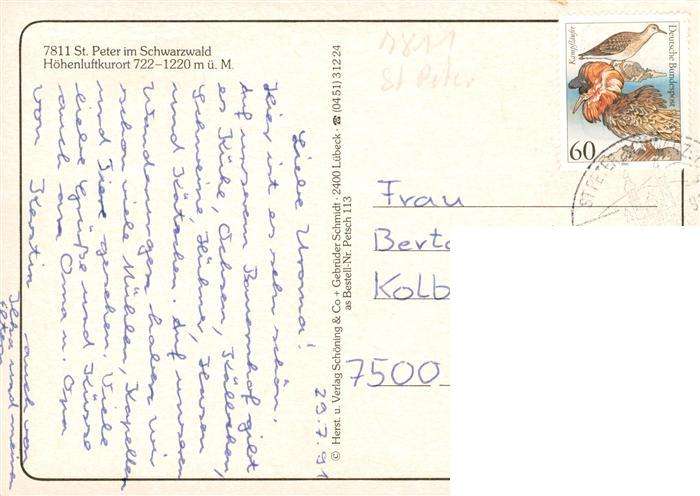 7811 St. Peter im Schwarzwald
Höhenluftkurort 722–1220 m ü. M.
29.7.91
Liebe Uroma!
Hier ist es sehr schön.
Auf unserem Bauernhof gibt
es Kühe, Ochsen, Kälbchen,
Schweine, Hühner, Hasen
und Kätzchen. Auf unseren
Wanderungen haben wir
schon viele Mühlen, Kapellen
und Tiere gesehen. Viele
liebe Grüße und Küsse
auch an Oma u. Opa
von Kerstin auch von
Jutta und meinen
Eltern
© Herst. u. Verlag Schöning & Co + Gebrüder Schmidt · 2400 Lübeck · ☎ (04 51) 3 12 24
as Bestell-Nr. Petsch 113
7811
St Peter
Kampfläufer
Deutsche Bundespost
60
ST PETER
Frau
Berta
Kolb
7500